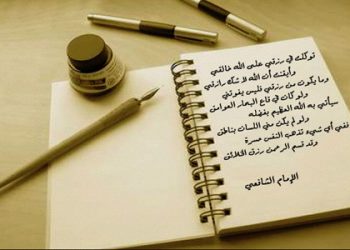 توكلت في رزقي على الله خالقي
وأيقنت أن الله لا شك رازقي
وما يكون من رزقي فليس يفوتني
ولو كان في قاع البحار العوامق
سيأتي به الله العظيم بفضله
ولو لم يكن مني اللسان بناطق
ففي أي شيء تذهب النفس حسرة
وقد قسم الرحمن رزق الخلائق
الإمام الشافعي